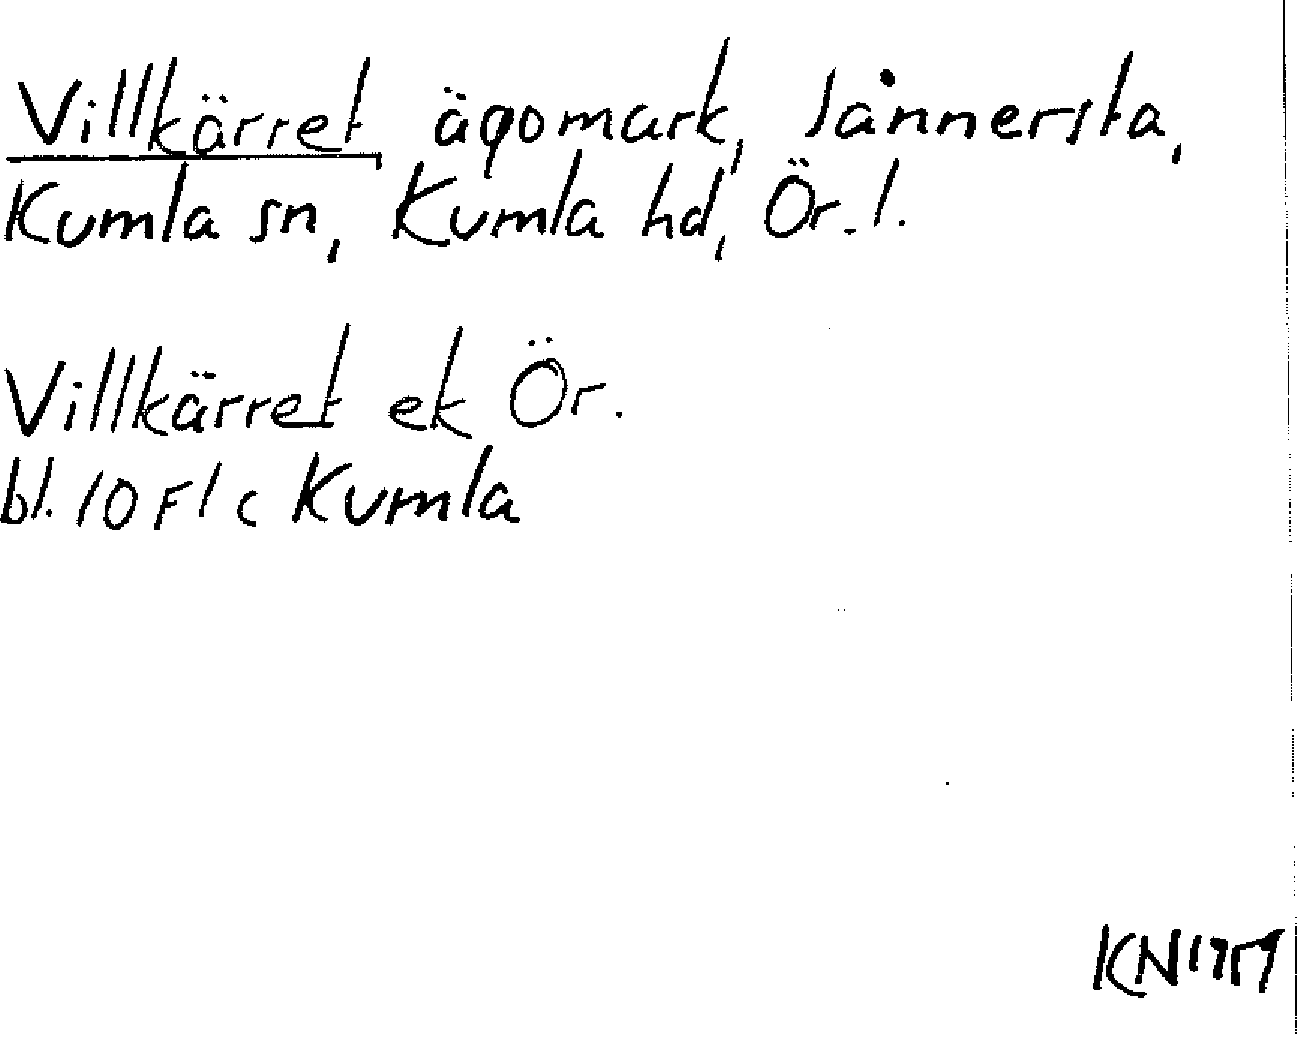 Villkärret, ägomark, Jånnersta,
Kumla sn, Kumla hd, Ör. l.
Villkärret ek Ör.
bl. 10 F 1 c Kumla